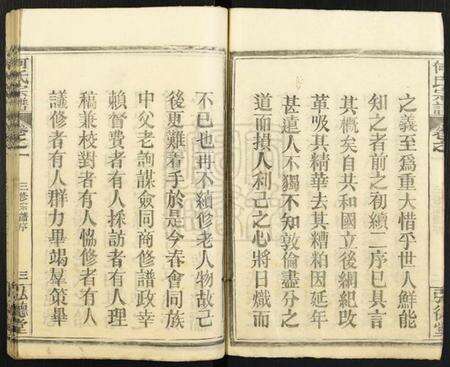 之義至爲重大惜乎世人鮮能
知之者前之初續二序已具言
其槪矣自共和國立後綱紀改
革吸其精華去其糟粕因延年
甚遠人不獨不知敦倫盡分之
道而損人利己之心將日熾而
不已也冉不續修老人物故己
後更難着手於是今春會同族
中父老詢謀僉同商修譜政幸
賴督費者有人採訪者有人理
稿兼校對者有人恊修者有人
議修者有人群力畢竭羣策畢
何氏宗譜
卷之一
三修宗譜序
三
弘德堂